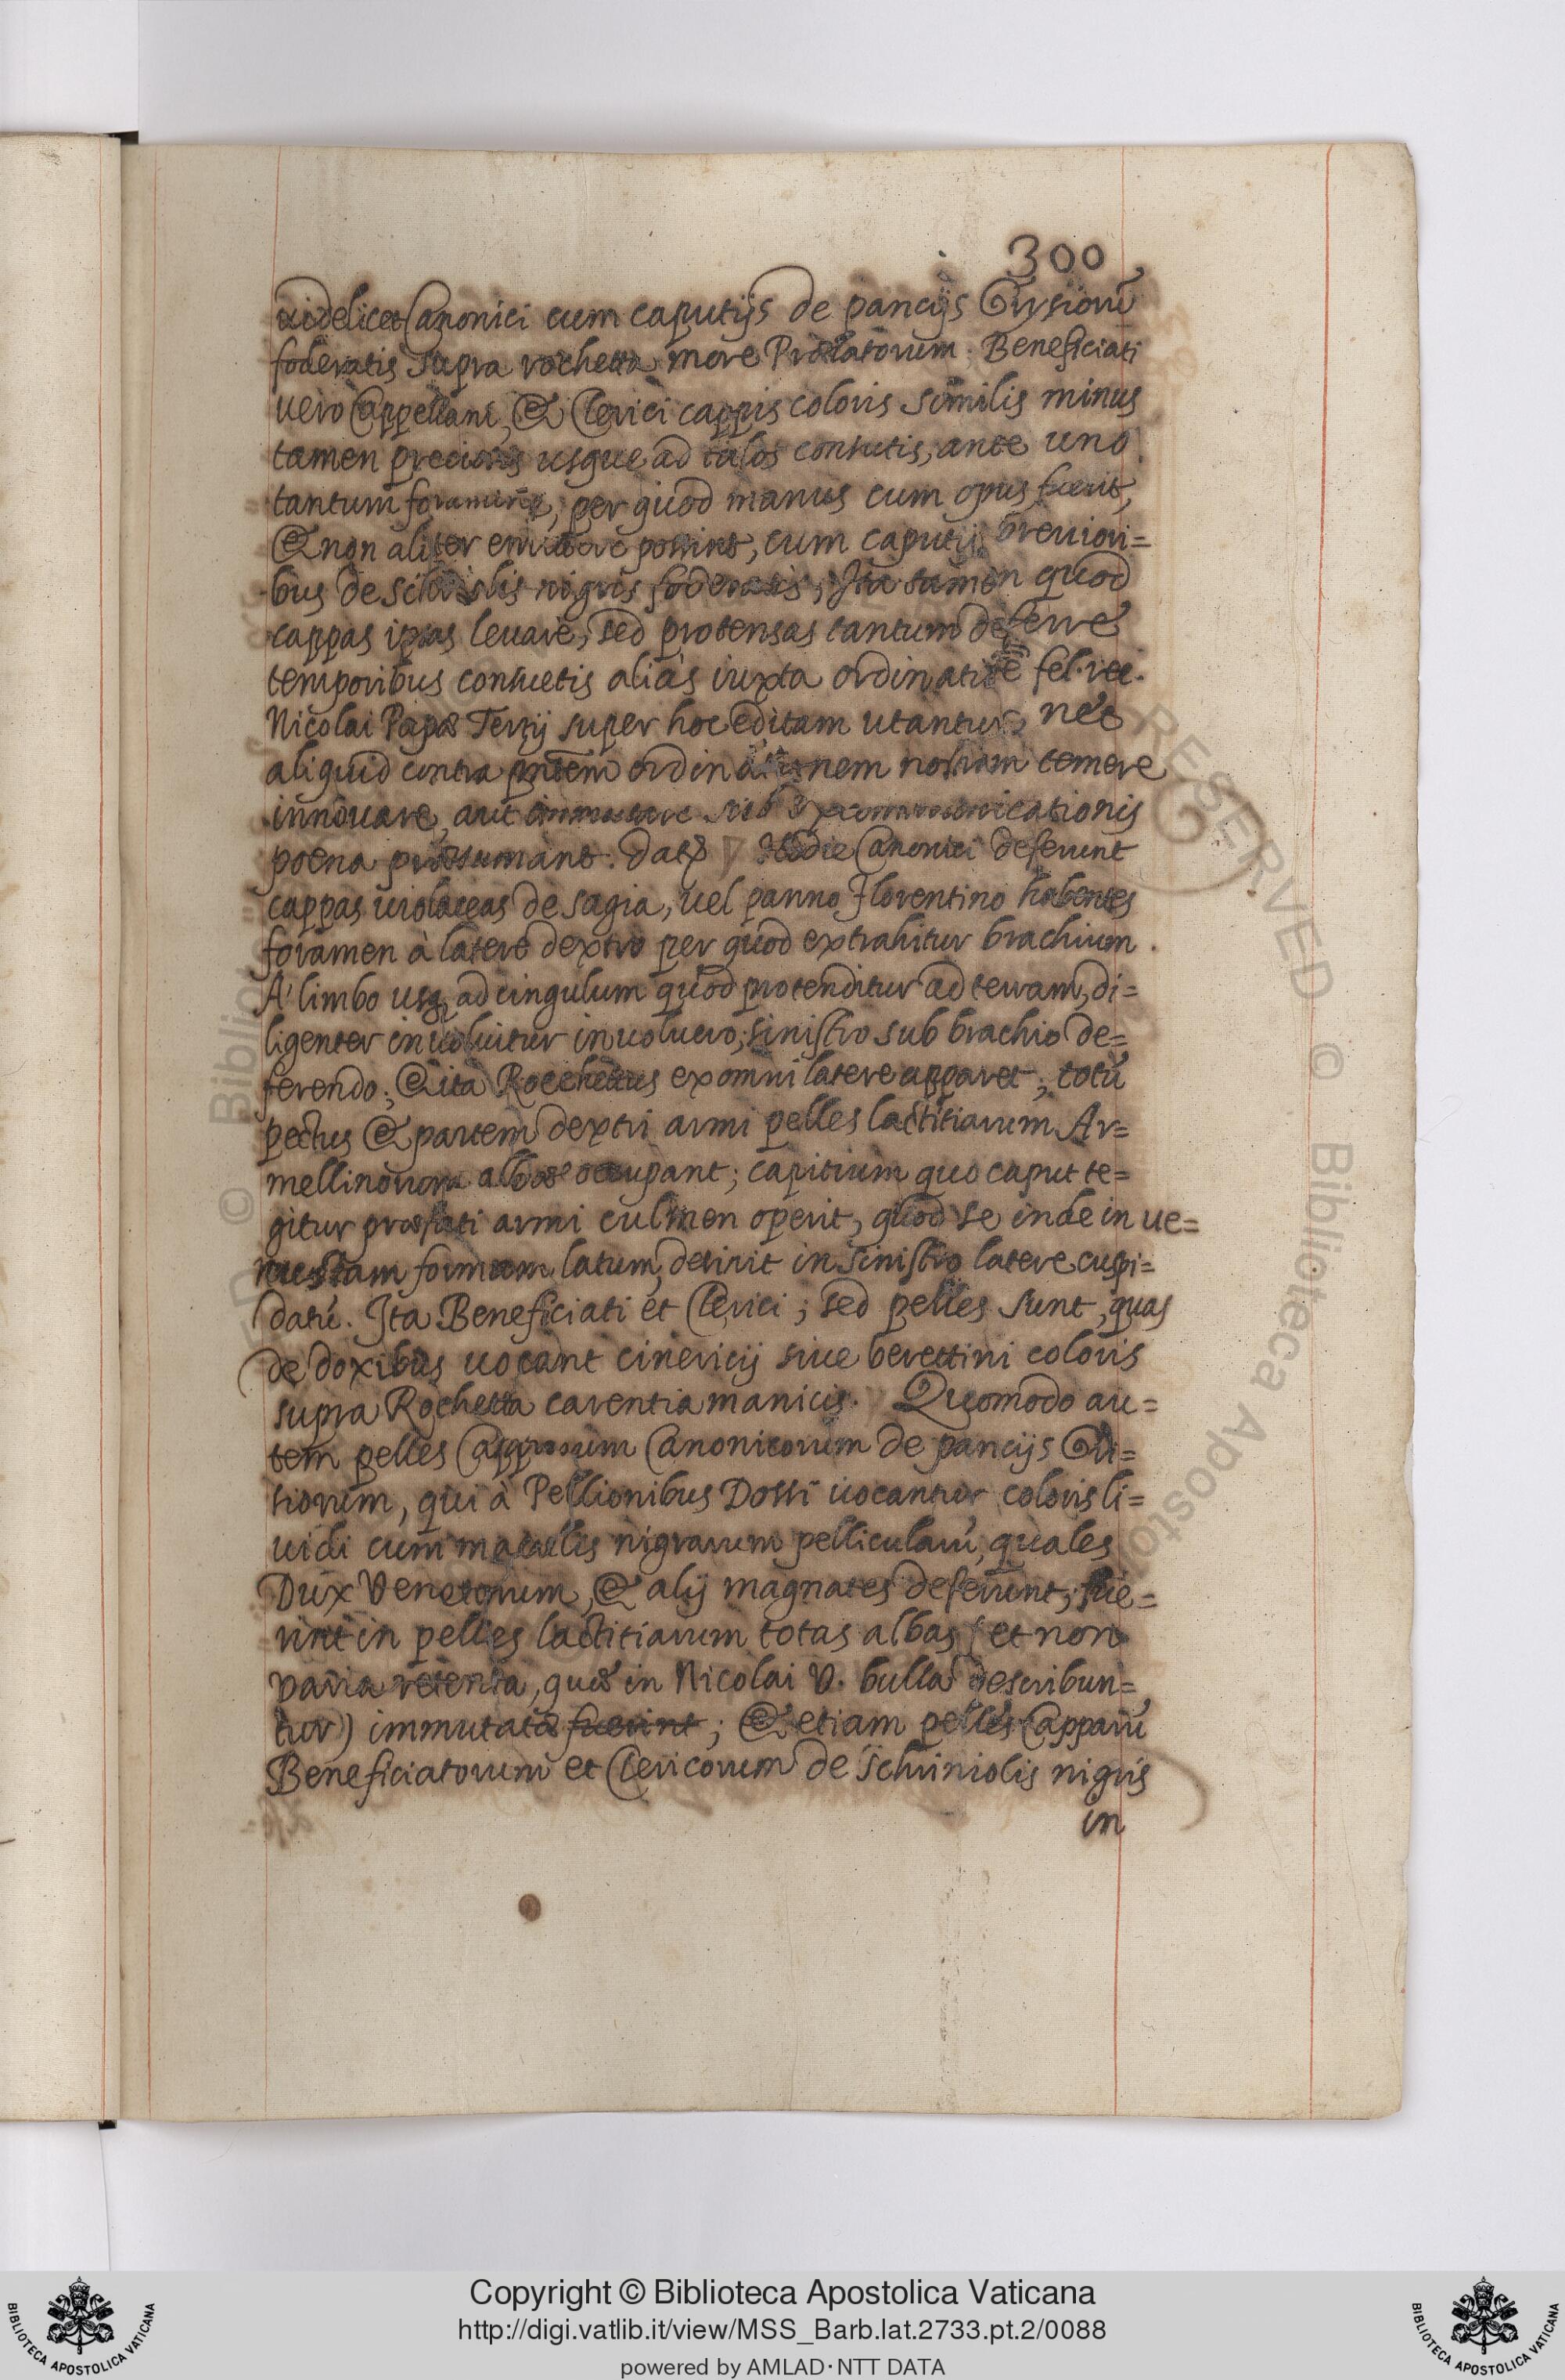 300
uidelicet Canonici cum caputijs de pancijs Grysiorũ
foderatis supra rochetta more Prælatorum; Beneficiati
uero Cappellani, & Clerici cappis coloris similis minus
tamen preciosis usque ad talos consutis, ante uno
tantum foramine, per quod manus cum opus fuerit,
& non aliter emittere possint, cum caputijs breuiori=
bus de nigris foderatis; Ita tamen quod
cappas ipsas leuare, sed protensas tantum deferre
temporibus consuetis aliàs iuxta fel. rec.
Nicolai Papæ Terzij super hoc editam utantur, nec
aliquid contra pñtem ordinationem nostram temere
innouare, aut immutare sub excommunicationis
poena præsumant. Hodie Canonici deferunt
cappas uiolaceas de sagia, uel panno Florentino habentes
foramen à latere dextro per quod extrahitur brachium.
A' limbo usq; ad cingulum quod protenditur ad terram, di=
ligenter inuoluitur inuolucro, sinistro sub brachio de=
ferendo; & ita Rocchettus ex omni latere apparet; totũ
pectus & partem dextri armi pelles lactitiarum Ar=
mellinorum albæ occupant; capitium quo caput te=
gitur præfati armi culmen operit, quod se inde in ue=
nustam formam latum, desinit in sinistro latere cuspi=
datũ. Ita Beneficiati et Clerici; sed pelles sunt, quas
de doxibus uocant cinericij siue berettini coloris
supra Rochetta carentia manicis. Quomodo au=
tem pelles Capparum Canonicorum de pancijs Gri=
siorum, qui à Pellionibus Dossi uocantur coloris li=
uidi cum maculis nigrarum pellicularũ, quales
Dux Venetorum, & alij magnates deferunt, fue=
rint in pelles lactitiarum totas albas (et non
varia retenta, quæ in Nicolai V. bulla describun=
tur) immutatæ fuerint; & etiam pelles Capparũ
Beneficiatorum et Clericorum de schiriolis nigris
in
Copyright © Biblioteca Apostolica Vaticana
http://digi.vatlib.it/view/MSS_Barb.lat.2733.pt.2/0088
powered by AMLAD·NTT DATA